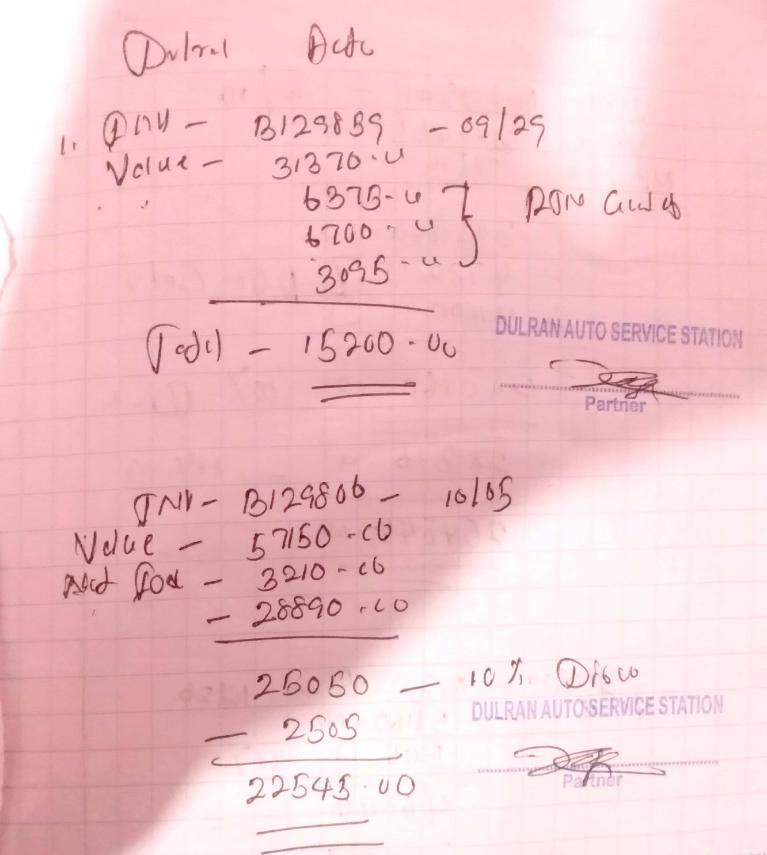 Dulran Auto
1. INV - B129839 - 09/29
Value - 31370.00
6375.00
6700.00
3095.00
Total - 15200.00
DULRAN AUTO SERVICE STATION
Partner
INV - B129806 - 10/05
Value - 57150.00
3210.00
- 28890.00
25050 - 10% Disco
DULRAN AUTO SERVICE STATION
- 2505
Partner
22545.00